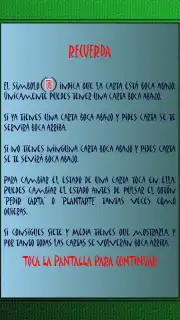 RECUERDA
EL SÍMBOLO INDICA QUE LA CARTA ESTÁ BOCA ABAJO.
ÚNICAMENTE PUEDES TENER UNA CARTA BOCA ABAJO.
SI YA TIENES UNA CARTA BOCA ABAJO Y PIDES CARTA SE TE
SERVIRÁ BOCA ARRIBA.
SI NO TIENES NINGUNA CARTA BOCA ABAJO Y PIDES CARTA
SE TE SERVIRÁ BOCA ABAJO.
PARA CAMBIAR EL ESTADO DE UNA CARTA TOCA EN ELLA.
PUEDES CAMBIAR EL ESTADO ANTES DE PULSAR EL BOTÓN
"PEDIR CARTA" O "PLANTARTE" TANTAS VECES COMO
QUIERAS.
SI CONSIGUES SIETE Y MEDIA TIENES QUE MOSTRARLA, Y
POR TANTO TODAS LAS CARTAS SE VOLVERÁN BOCA ARRIBA.
TOCA LA PANTALLA PARA CONTINUAR